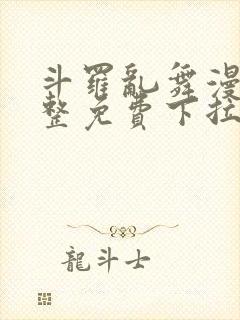 斗羅亂舞漫
整免費下拉
龍斗士